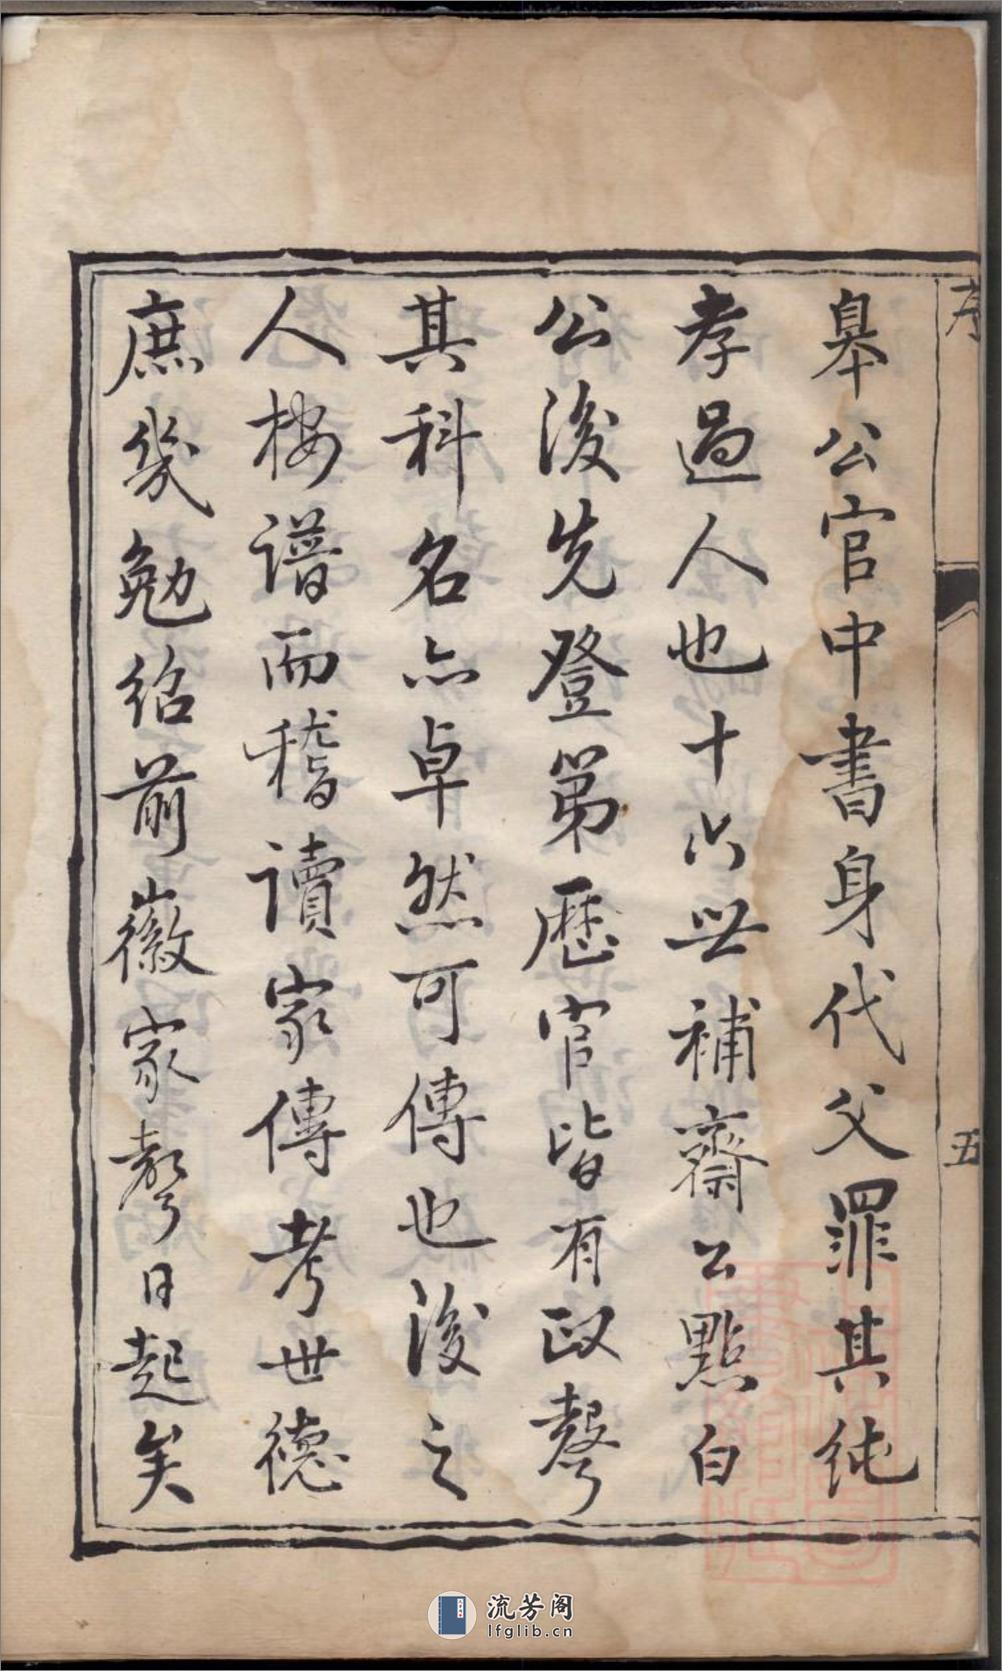 序
五
皋公官中書身代父罪其純
孝過人也十六世補齋公點白
公後先登第歷官皆有政聲
其科名亦卓然可傳也後之
人按譜而稽讀家傳考世德
庶幾勉紹前徽家聲日起矣
流芳阁
lfglib.cn